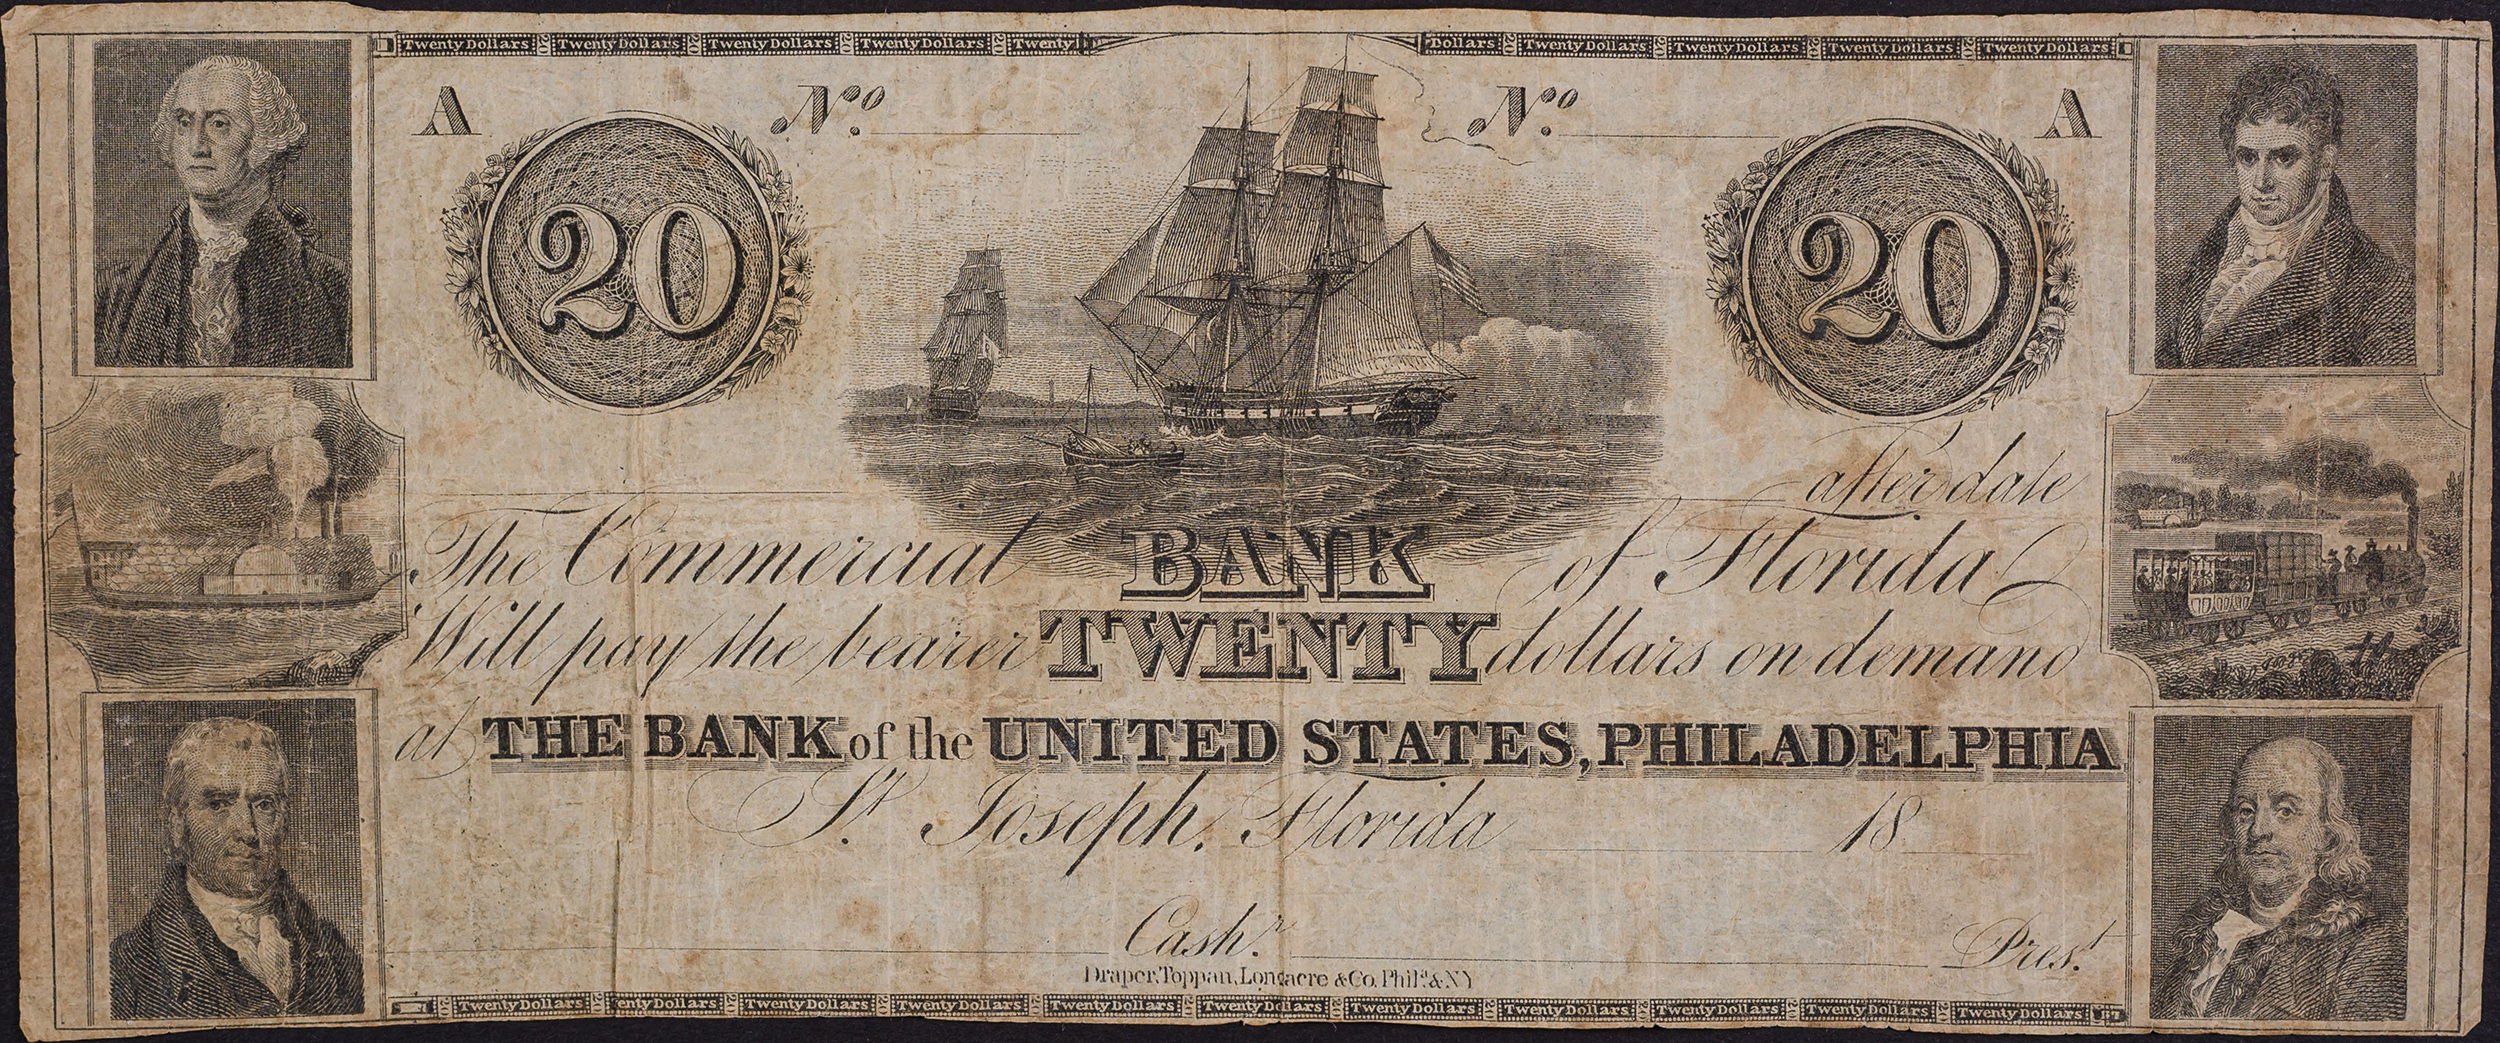 Twenty Dollars 20 Twenty Dollars 20 Twenty Dollars 20 Twenty Dollars 20 Twenty Dollars 20 Twenty Dollars 20 Twenty Dollars 20 Twenty Dollars 20 Twenty Dollars
A No. No. A
20 20
after date
The Commercial BANK of Florida
Will pay the bearer TWENTY dollars on demand
at THE BANK of the UNITED STATES, PHILADELPHIA
St. Joseph, Florida 18
Cashr. Prest.
Draper, Toppan, Longacre & Co. Phila. & NY
20 Twenty Dollars 20 Twenty Dollars 20 Twenty Dollars 20 Twenty Dollars 20 Twenty Dollars 20 Twenty Dollars 20 Twenty Dollars 20 Twenty Dollars 20 Twenty Dollars 20 Twenty Dollars 20 Twenty Dollars